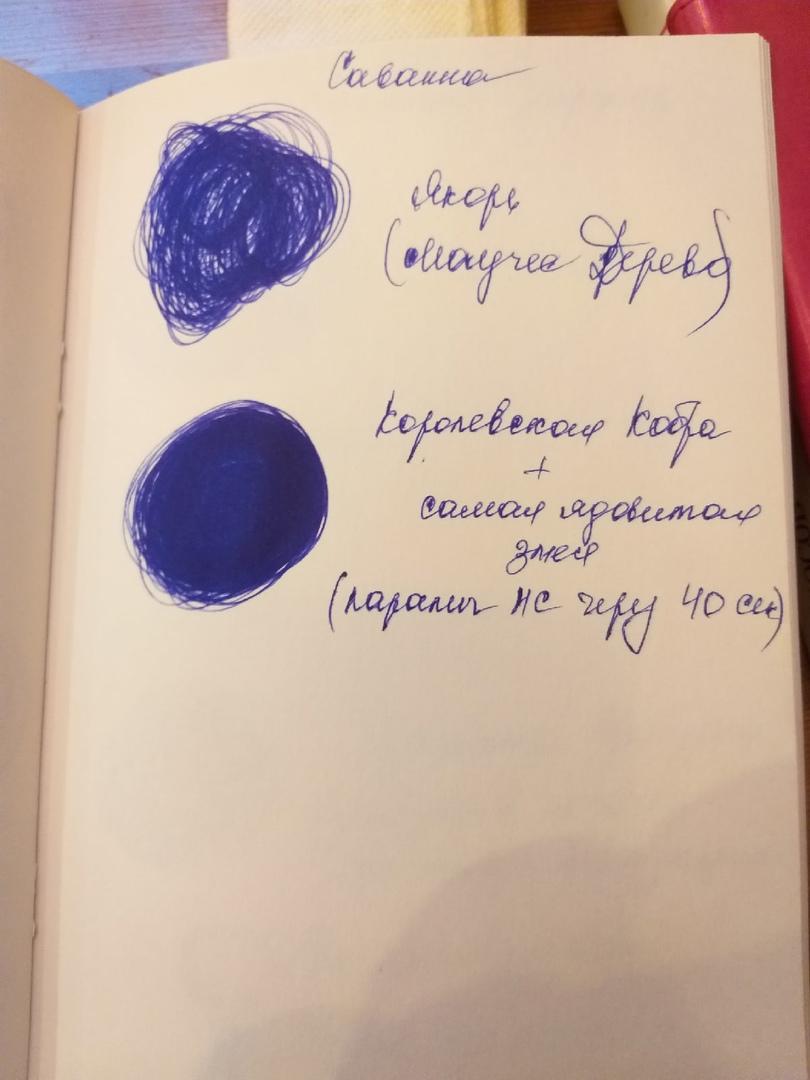 Саванна
Якорь
(Могучее Дерево)
Королевская Кобра
+
самая ядовитая
змея
(паралич НС через 40 сек)